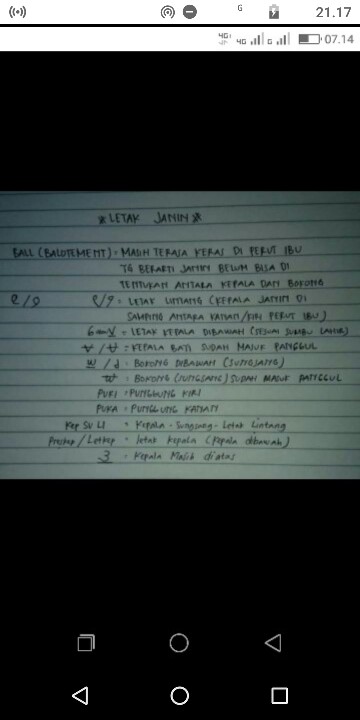 G 21.17
4G+ 4G G 07.14
LETAK JANIN
BALL (BALOTEMENT) = MASIH TERASA KERAS DI PERUT IBU
YG BERARTI JANIN BELUM BISA DI
TENTUKAN ANTARA KEPALA DAN BOKONG
= LETAK LINTANG (KEPALA JANIN DI
SAMPING ANTARA KANAN/KIRI PERUT IBU)
= LETAK KEPALA DIBAWAH (SESUAI SUMBU LAHIR)
= KEPALA BAYI SUDAH MASUK PANGGUL
= BOKONG DIBAWAH (SUNGSANG)
= BOKONG (SUNGSANG) SUDAH MASUK PANGGUL
PUKI = PUNGGUNG KIRI
PUKA = PUNGGUNG KANAN
Kep Su Li = Kepala - Sungsang - Letak Lintang
Preskep / Letkep = letak kepala (kepala dibawah)
3 = Kepala Masih diatas